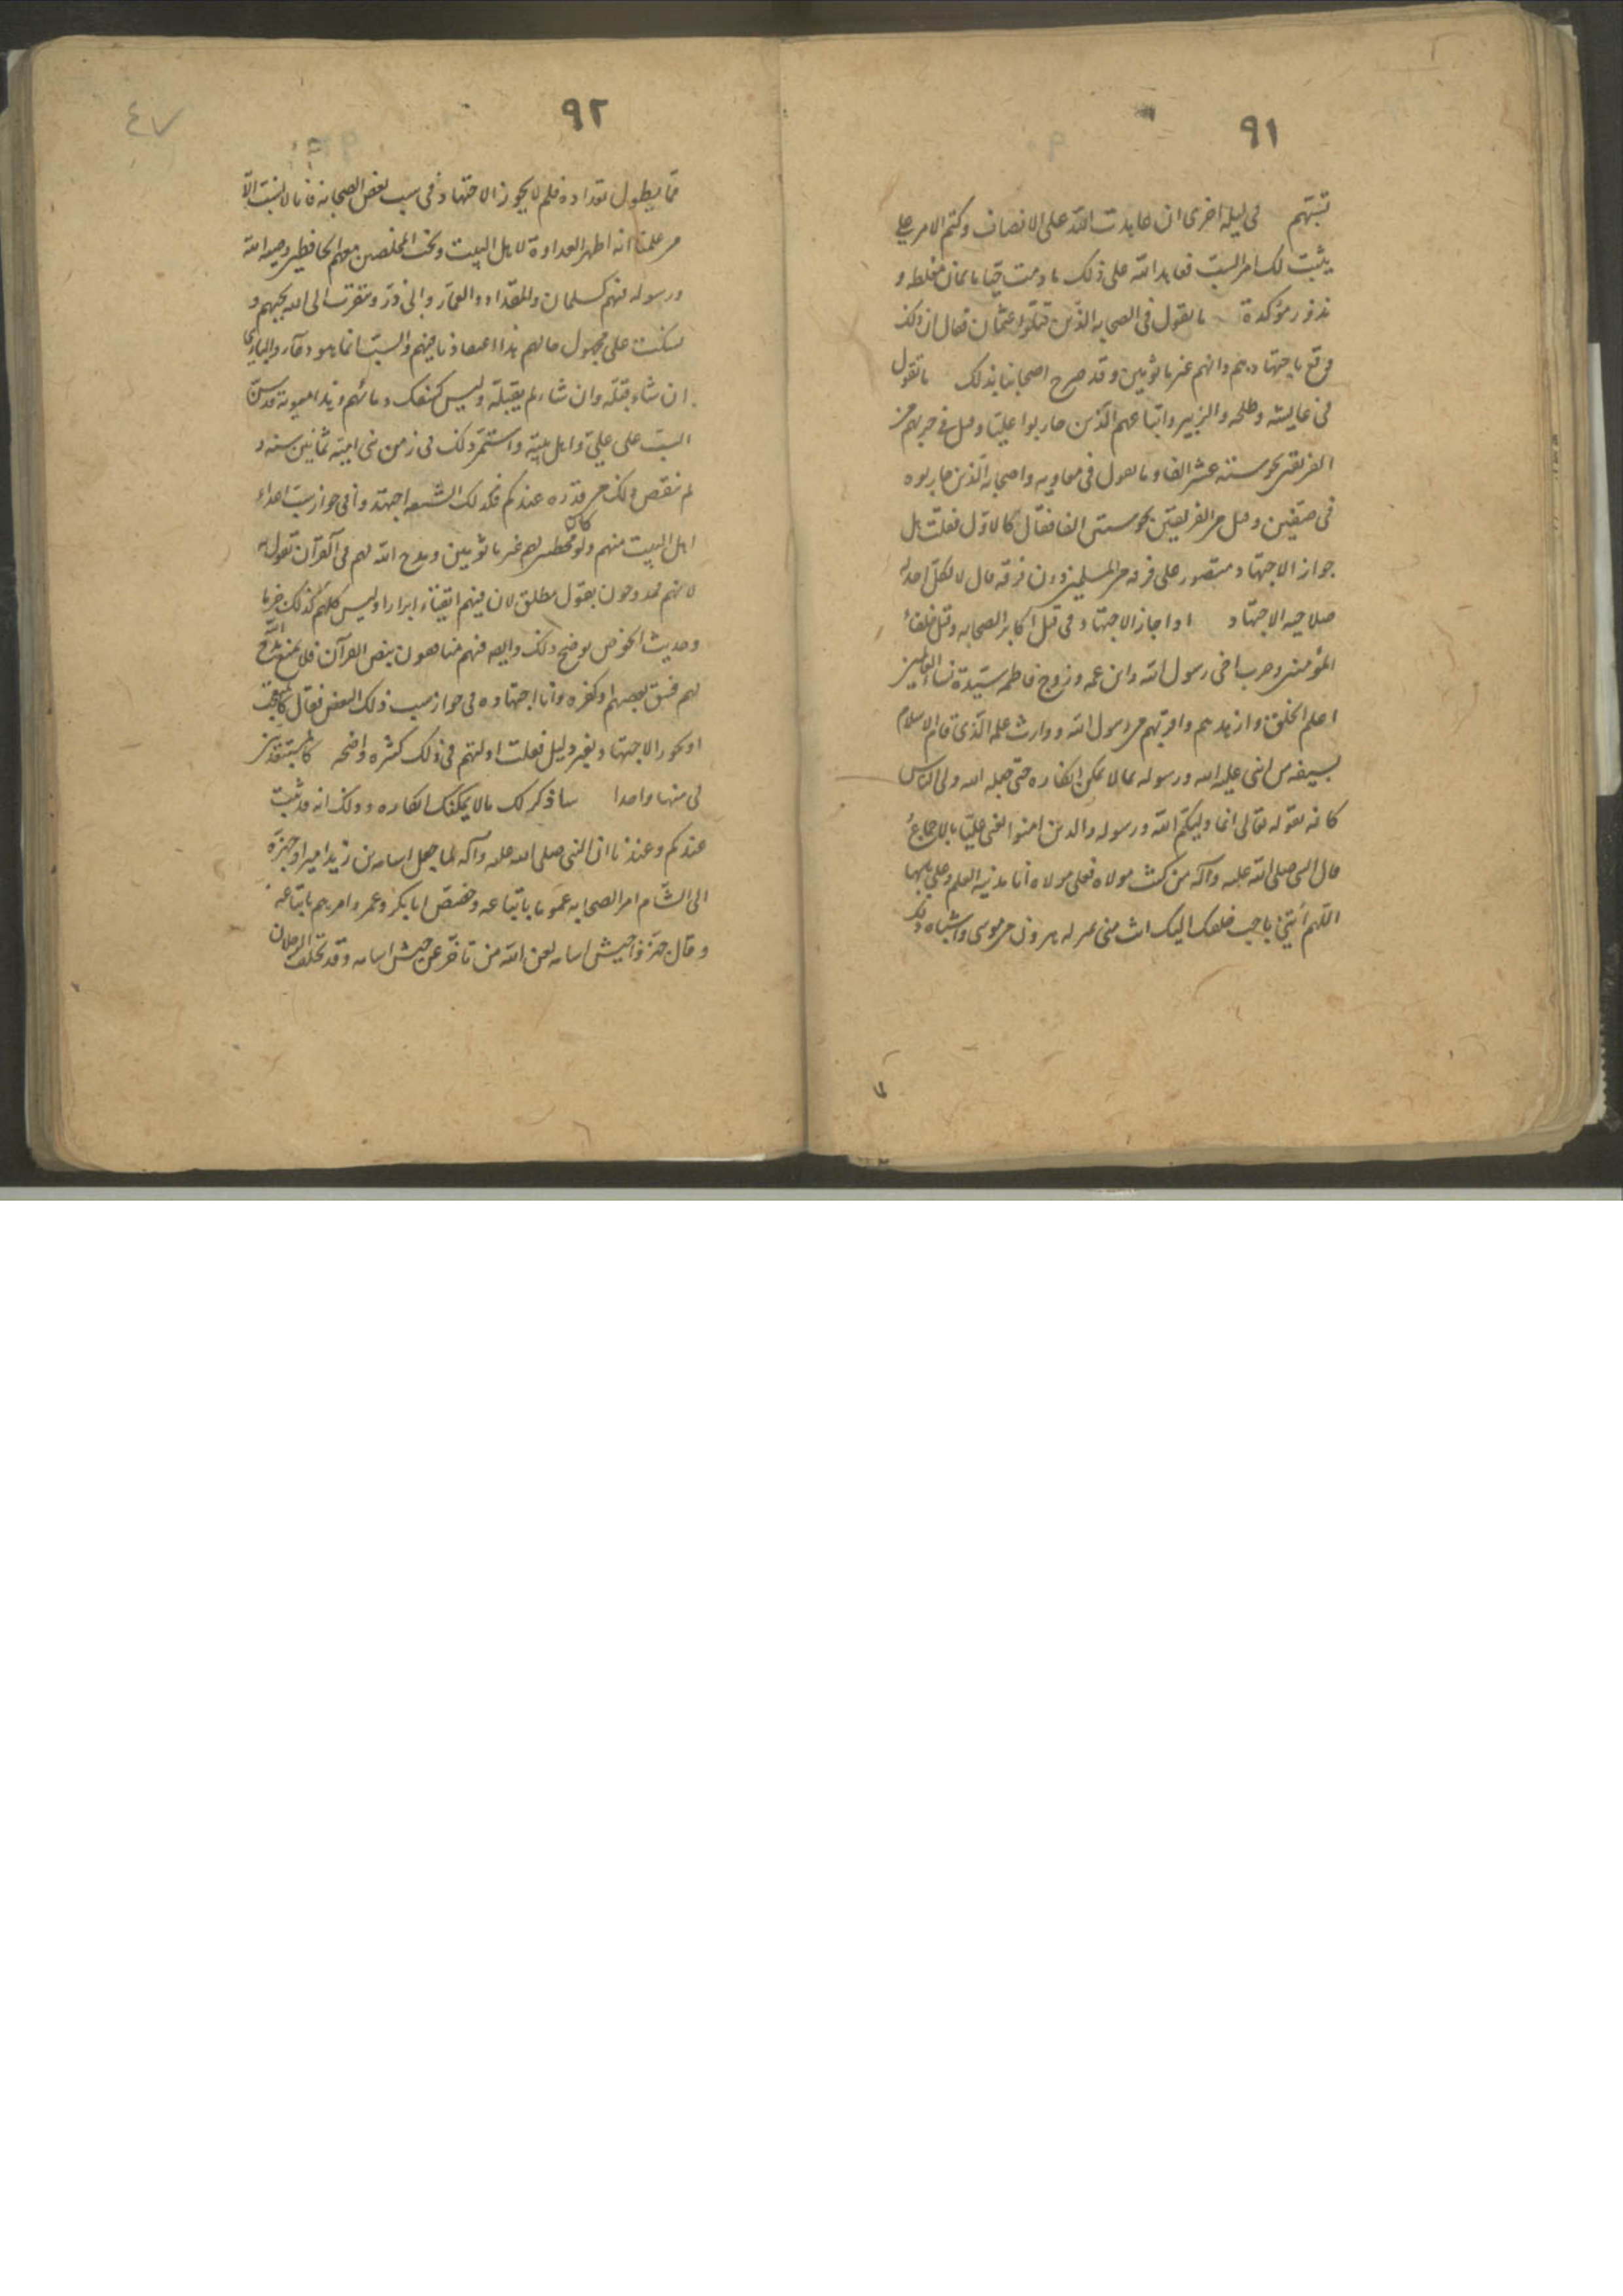 ٩١
تسبّهم في ليلة اخرى ان عاهدت اللّه على الانصاف وكتم الامر علي
يثبت لك امر السبّ فعاهد اللّه على ذلك ما دمت حيّا بايمان مغلظه و
نذور مؤكدة ما تقول في الصحابه الذين قتلوا عثمان فقال ان ذلك
وقع باجتهادهم وانهم غير مأثومين وقد صرح اصحابنا بذلك ما تقول
في عايشه وطلحه والزبير واتباعهم الّذين حاربوا عليّا وقتل في حربهم من
الفريقين نحو ستة عشر الفا وما تقول في معاويه واصحابه الّذين حاربوه
في صفّين وقتل من الفريقين نحو ستين الفا فقال كالاوّل فقلت هل
جواز الاجتهاد مقصور على فرقه من المسلمين دون فرقه قال لا لكلّ احد له
صلاحيه الاجتهاد اذا جاز الاجتهاد في قتل اكابر الصحابه وقتل خلفاء
المؤمنين وحرب اخي رسول اللّه وابن عمه وزوج فاطمه سيّدة نساء العالمين
اعلم الخلق وازهدهم واقربهم من رسول اللّه ووارث علمه الّذي قام الاسلام
بسيفه من اثنى عليه اللّه ورسوله بما لا يمكن انكاره حتى جعله اللّه ولي النّاس
كافه بقوله تعالى انما وليكم اللّه ورسوله والذين امنوا يعني عليّا بالاجماع
قال النبي صلى اللّه عليه وآله من كنت مولاه فعلي مولاه أنا مدينه العلم وعلي بابها
اللّهم أئتني باحب خلقك اليك انت مني بمنزله هرون من موسى واشباه ذلك
٩٢
٤٧
ممّا يطول تعداده فلم لا يجوز الاجتهاد في سب بعض الصحابة فانا لا نسبّ الّا
من علمنا انه اظهر العداوة لاهل البيت ونحب المخلصين منهم الحافظين وصيه اللّه
ورسوله فيهم كسلمان والمقداد والعمّار وابي ذرّ ونتقرب الى اللّه بحبهم و
نسكت على مجهول حالهم هذا اعتقادنا فيهم والسبّ انما هو دعآء والباري
ان شاء يقبله وان شاء لم يقبله وليس كسفك دمائهم وهذا معويه قد سنّ
السبّ على عليّ واهل بيته واستمرّ ذلك في زمن بني اميّه ثمانين سنه و
لم ينقص ذلك من قدره عندكم فكذلك الشيعه اجتهدوا في جواز سبّ اعداء
اهل البيت منهم ولو كانوا مخطئين لهم غير مأثومين ومدح اللّه لهم في القرآن نقول به
لانهم ممدوحون بقول مطلق لان فيهم اتقياء ابرارا وليس كلهم كذلك جزما
وحديث الحوض يوضح ذلك وايضا فيهم منافقون بنص القرآن فلا يمنع مدح اللّه
لهم فسق بعضهم او كفره وانا اجتهاده في جواز سب ذلك البعض فقال كالمتعجّب
او يجوز الاجتهاد بغير دليل فقلت ادلتهم في ذلك كثيره واضحه كالمستبعد بين
لي منها واحدا ساذكر لك ما لا يمكنك انكاره وذلك انه قد ثبت
عندكم وعندنا ان النبي صلى اللّه عليه وآله لما جعل اسامه بن زيد اميرا وجهزه
الى الشّام امر الصحابه عموما باتباعه وخصّص ابا بكر وعمر وامرهم باتباعه
وقال جهّزوا جيش اسامه لعن اللّه من تأخّر عن جيش اسامه وقد تخلّف الرجلان